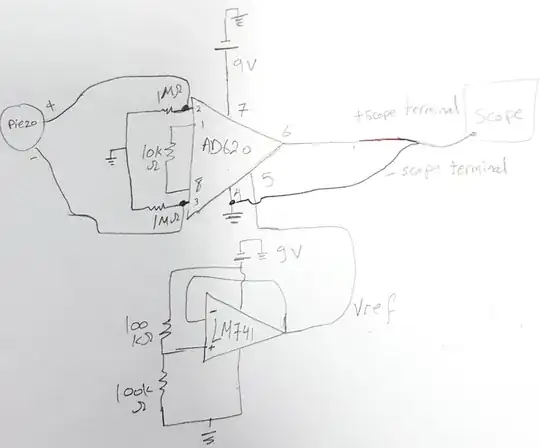 9V
1MΩ
+
2
7
Piezo
1
10k
Ω
AD620
6
+scope terminal
Scope
-
8
3
4
5
- scope terminal
1MΩ
9V
100
kΩ
-
LM741
+
Vref
100k
Ω